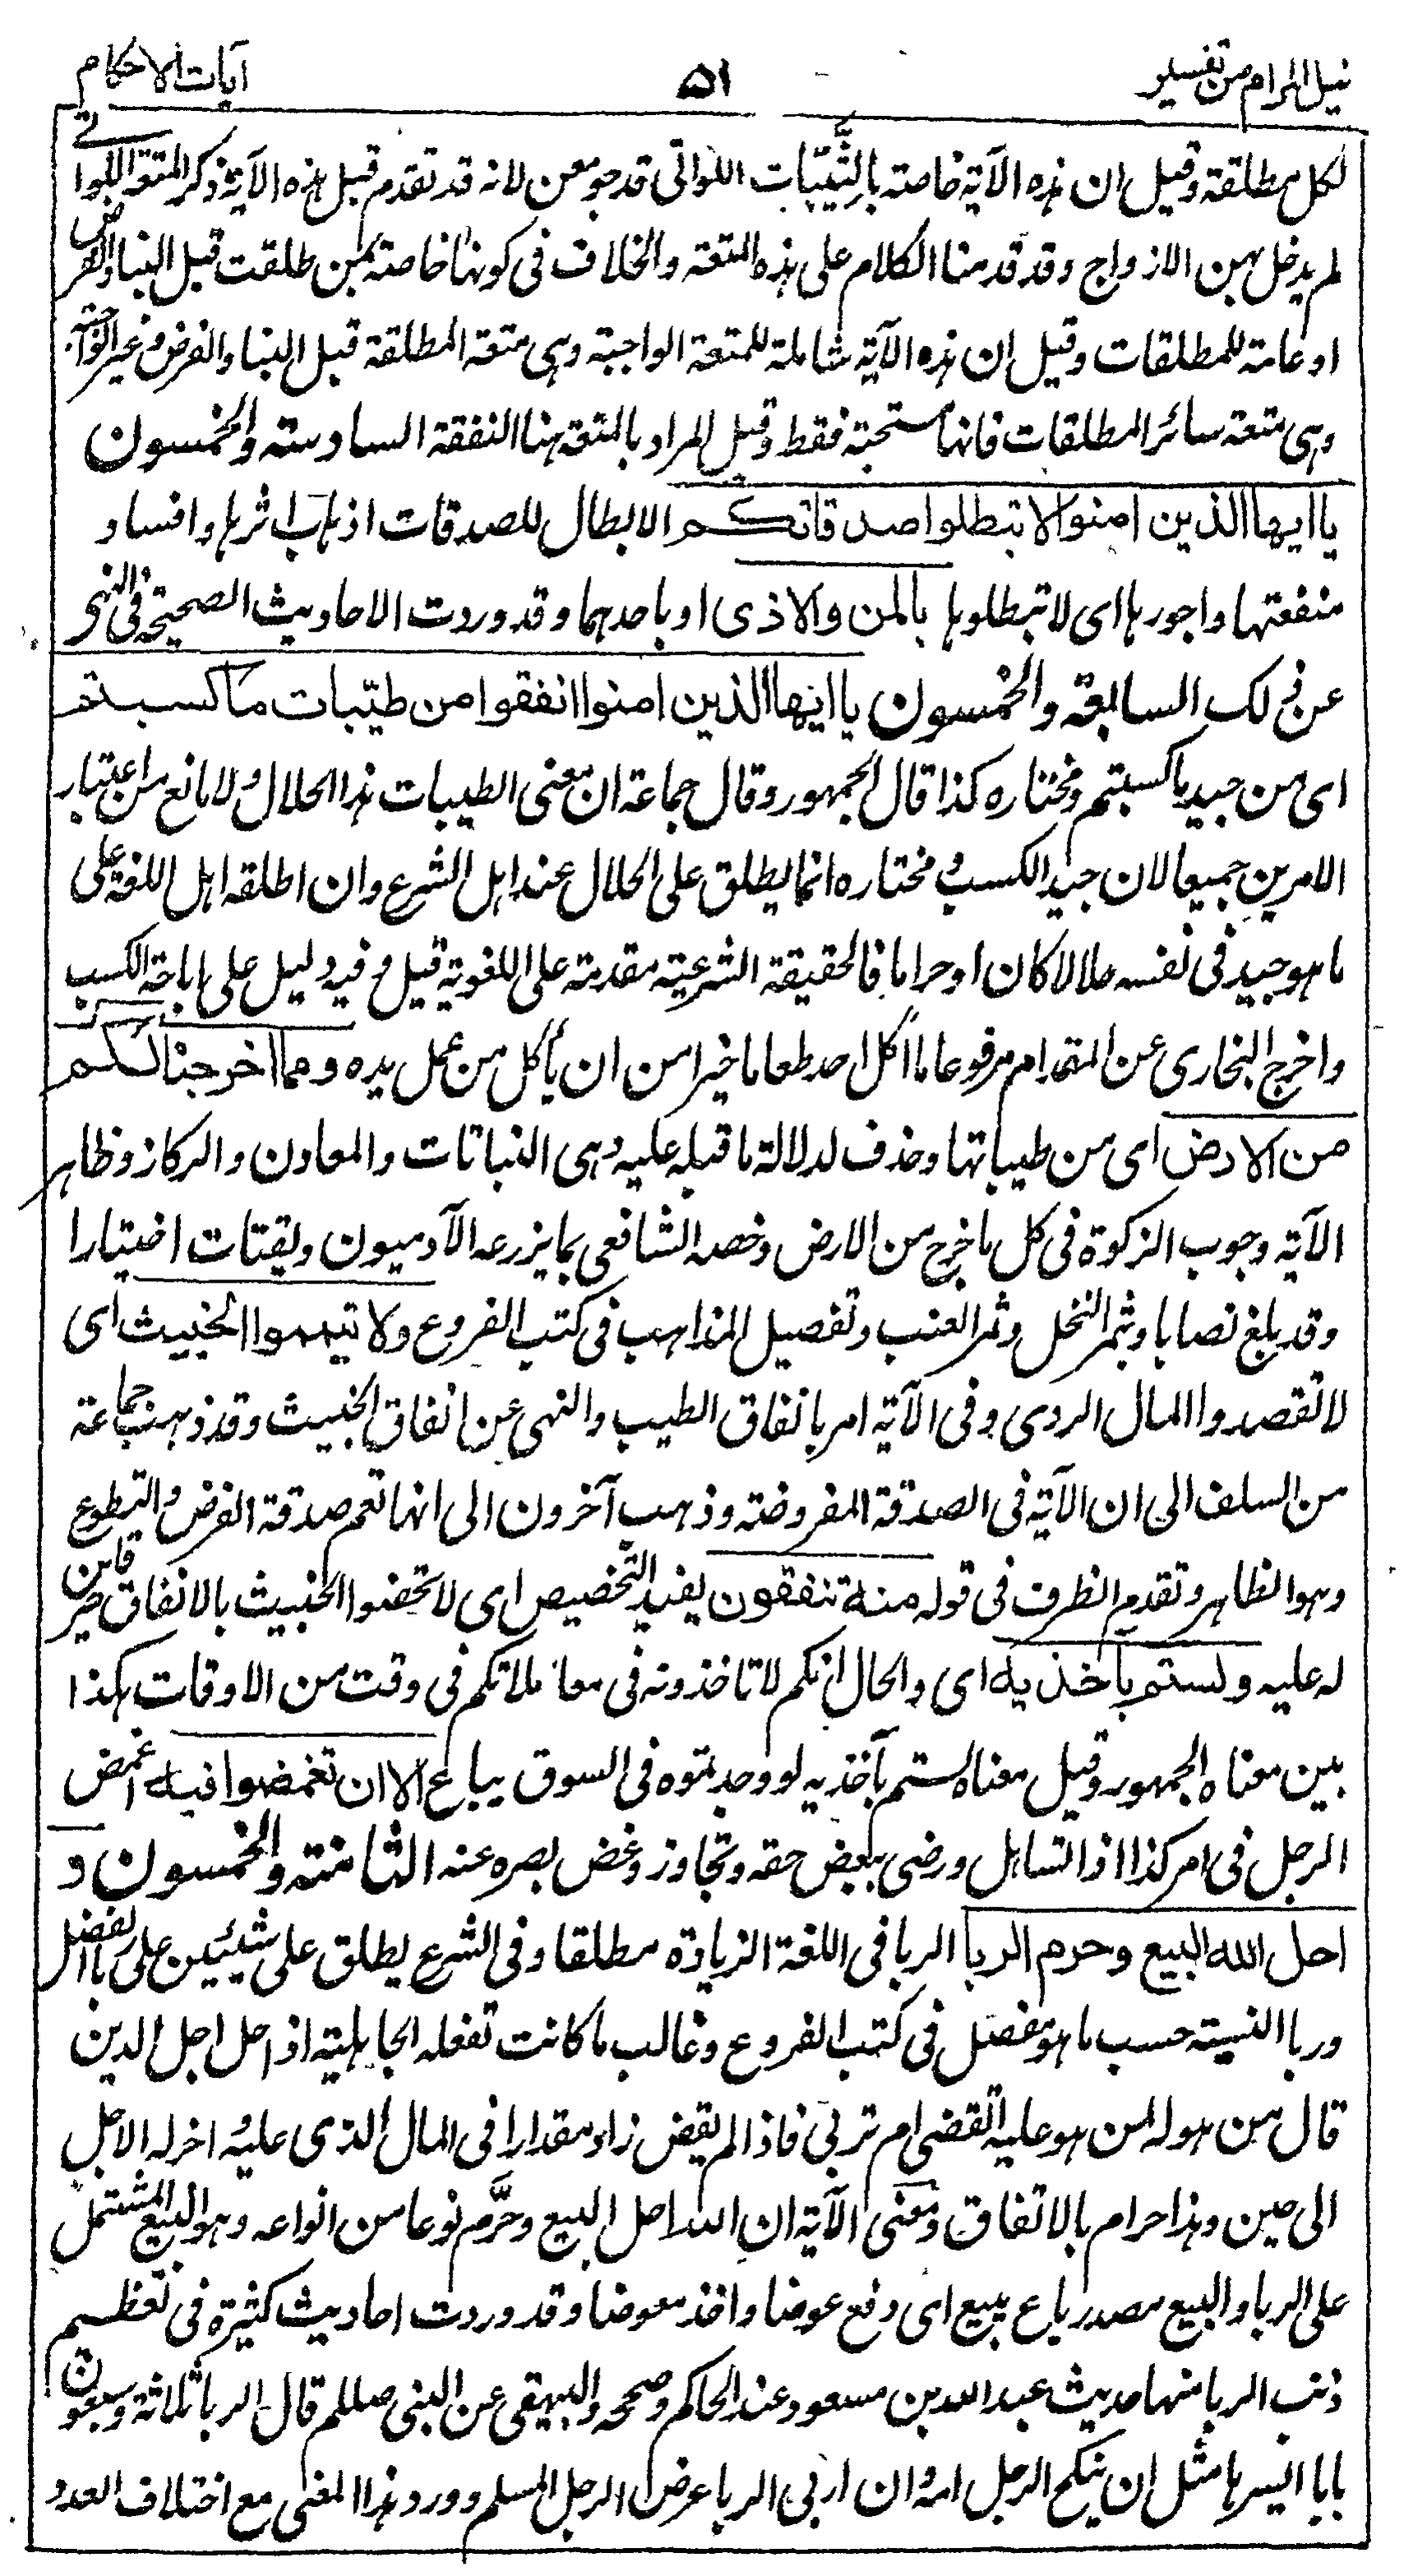 نيل المرام من تفسير ٥١ آيات الاحكام
لكل مطلقة وقيل ان هذه الآية خاصة بالثَّيِّبات اللواتى قد جومعن لانه قد تقدم قبل هذه الآية ذكر المتعة اللواتے
لم يدخل بهن الازواج وقد قدمنا الكلام على هذه المتعة والخلاف فى كونها خاصة بمن طلقت قبل البناء والفرض
او عامة للمطلقات وقيل ان هذه الآية شاملة للمتعة الواجبة وهى متعة المطلقة قبل البناء والفرض وغير الواجبة
وهى متعة سائر المطلقات فانها مستحبة فقط وقيل المراد بالمتعة هنا النفقة السادسة والخمسون
يا ايها الذين امنوا لا تبطلوا صدقاتكم الابطال للصدقات اذهاب اثرها وافساد
منفعتها واجورها اى لا تبطلوها بالمن والاذى او باحدهما وقد وردت الاحاديث الصحيحة فى النهى
عن ذلك السابعة والخمسون يا ايها الذين امنوا انفقوا من طيّبات ما كسبتم
اى من جيد ما كسبتم ومختاره كذا قال الجمهور وقال جماعة ان معنى الطيبات هذا الحلال ولا مانع من اعتبار
الامرين جميعا لان جيد الكسب ومختاره انما يطلق على الحلال عند اهل الشرع وان اطلقه اهل اللغة على
ما هو جيد فى نفسه حلالا كان او حراما فالحقيقة الشرعية مقدمة على اللغوية قيل وفيه دليل على اباحة الكسب
واخرج البخارى عن المقدام مرفوعا ما اكل احد طعاما خيرا من ان يأكل من عمل يده ومما اخرجنا لكم
من الارض اى من طيباتها وحذف لدلالة ما قبله عليه وهى النباتات والمعادن والركاز وظاهر
الآية وجوب الزكوة فى كل ما خرج من الارض وخصه الشافعى بما يزرعه الآدميون ويقتات اختيارا
وقد بلغ نصابا وثمر النخل وثمر العنب وتفصيل المذاهب فى كتب الفروع ولا تيمموا الخبيث اى
لا تقصدوا المال الردى وفى الآية امر بانفاق الطيب والنهى عن انفاق الخبيث وقد ذهب جماعة
من السلف الى ان الآية فى الصدقة المفروضة وذهب آخرون الى انها تعم صدقة الفرض والتطوع
وهو الظاهر وتقدم الظرف فى قوله منه تنفقون يفيد التخصيص اى لا تخصوا الخبيث بالانفاق قاصرين
له عليه ولستم بآخذيه اى والحال انكم لا تاخذونه فى معاملاتكم فى وقت من الاوقات هكذا
بين معناه الجمهور وقيل معناه لستم بآخذيه لو وجدتموه فى السوق يباع الا ان تغمضوا فيه اغمض
الرجل فى امر كذا اذا تساهل ورضى ببعض حقه وتجاوز وغض بصره عنه الثامنة والخمسون و
احل الله البيع وحرم الربا الربا فى اللغة الزيادة مطلقا وفى الشرع يطلق على شيئين على ربا الفضل
وربا النسيئة حسب ما هو مفصل فى كتب الفروع وغالب ما كانت تفعله الجاهلية اذا حل اجل الدين
قال من هو له لمن هو عليه اتقضى ام تربى فاذا لم يقض زاد مقدارا فى المال الذى عليه واخر له الاجل
الى حين وهذا حرام بالاتفاق ومعنى الآية ان الله احل البيع وحرَّم نوعا من انواعه وهو البيع المشتمل
على الربا والبيع مصدر باع يبيع اى دفع عوضا واخذ معوضا وقد وردت احاديث كثيرة فى تعظيم
ذنب الربا منها حديث عبد الله بن مسعود عند الحاكم وصححه والبيهقى عن النبى صللم قال الربا ثلاثة وسبعون
بابا ايسرها مثل ان ينكح الرجل امه وان اربى الربا عرض الرجل المسلم وورد هذا المعنى مع اختلاف العدد